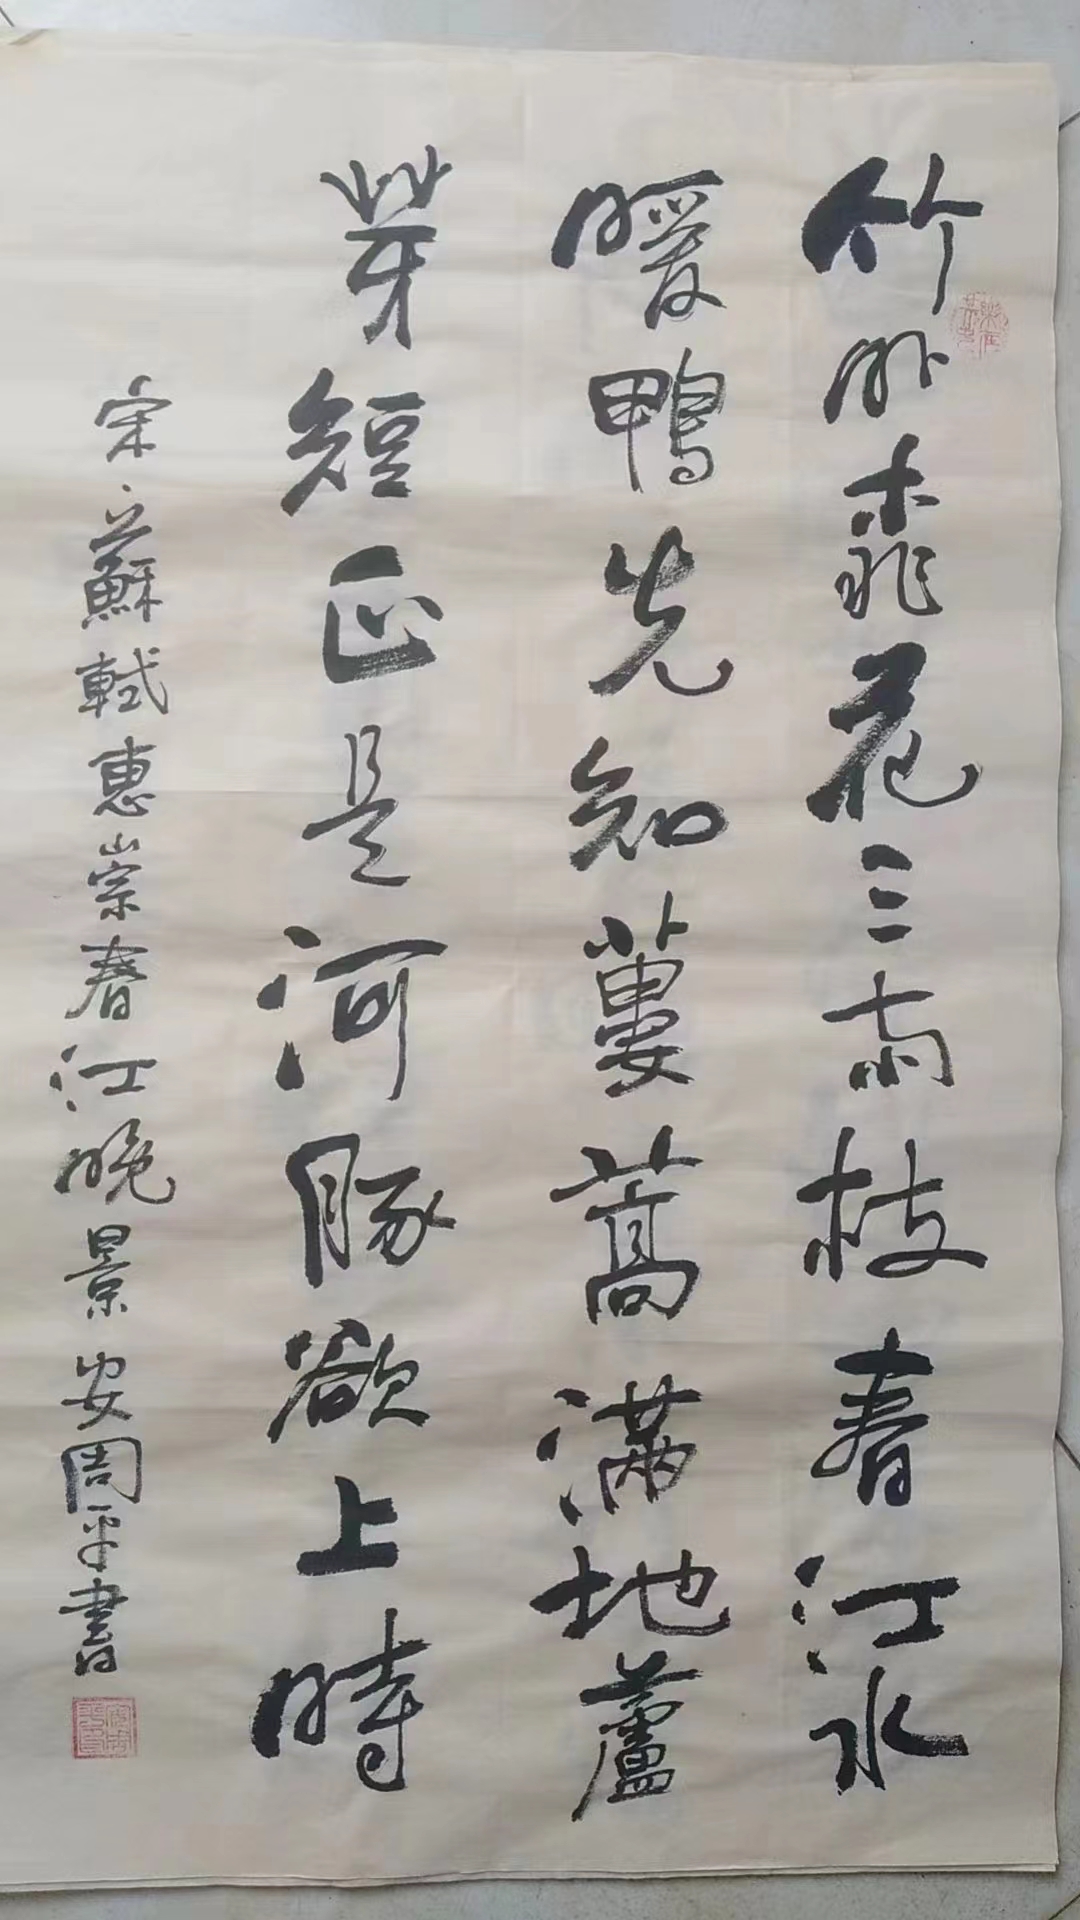 竹外桃花三兩枝春江水
暖鴨先知蔞蒿滿地蘆
芽短正是河豚欲上時
宋蘇軾惠崇春江晚景安周平書